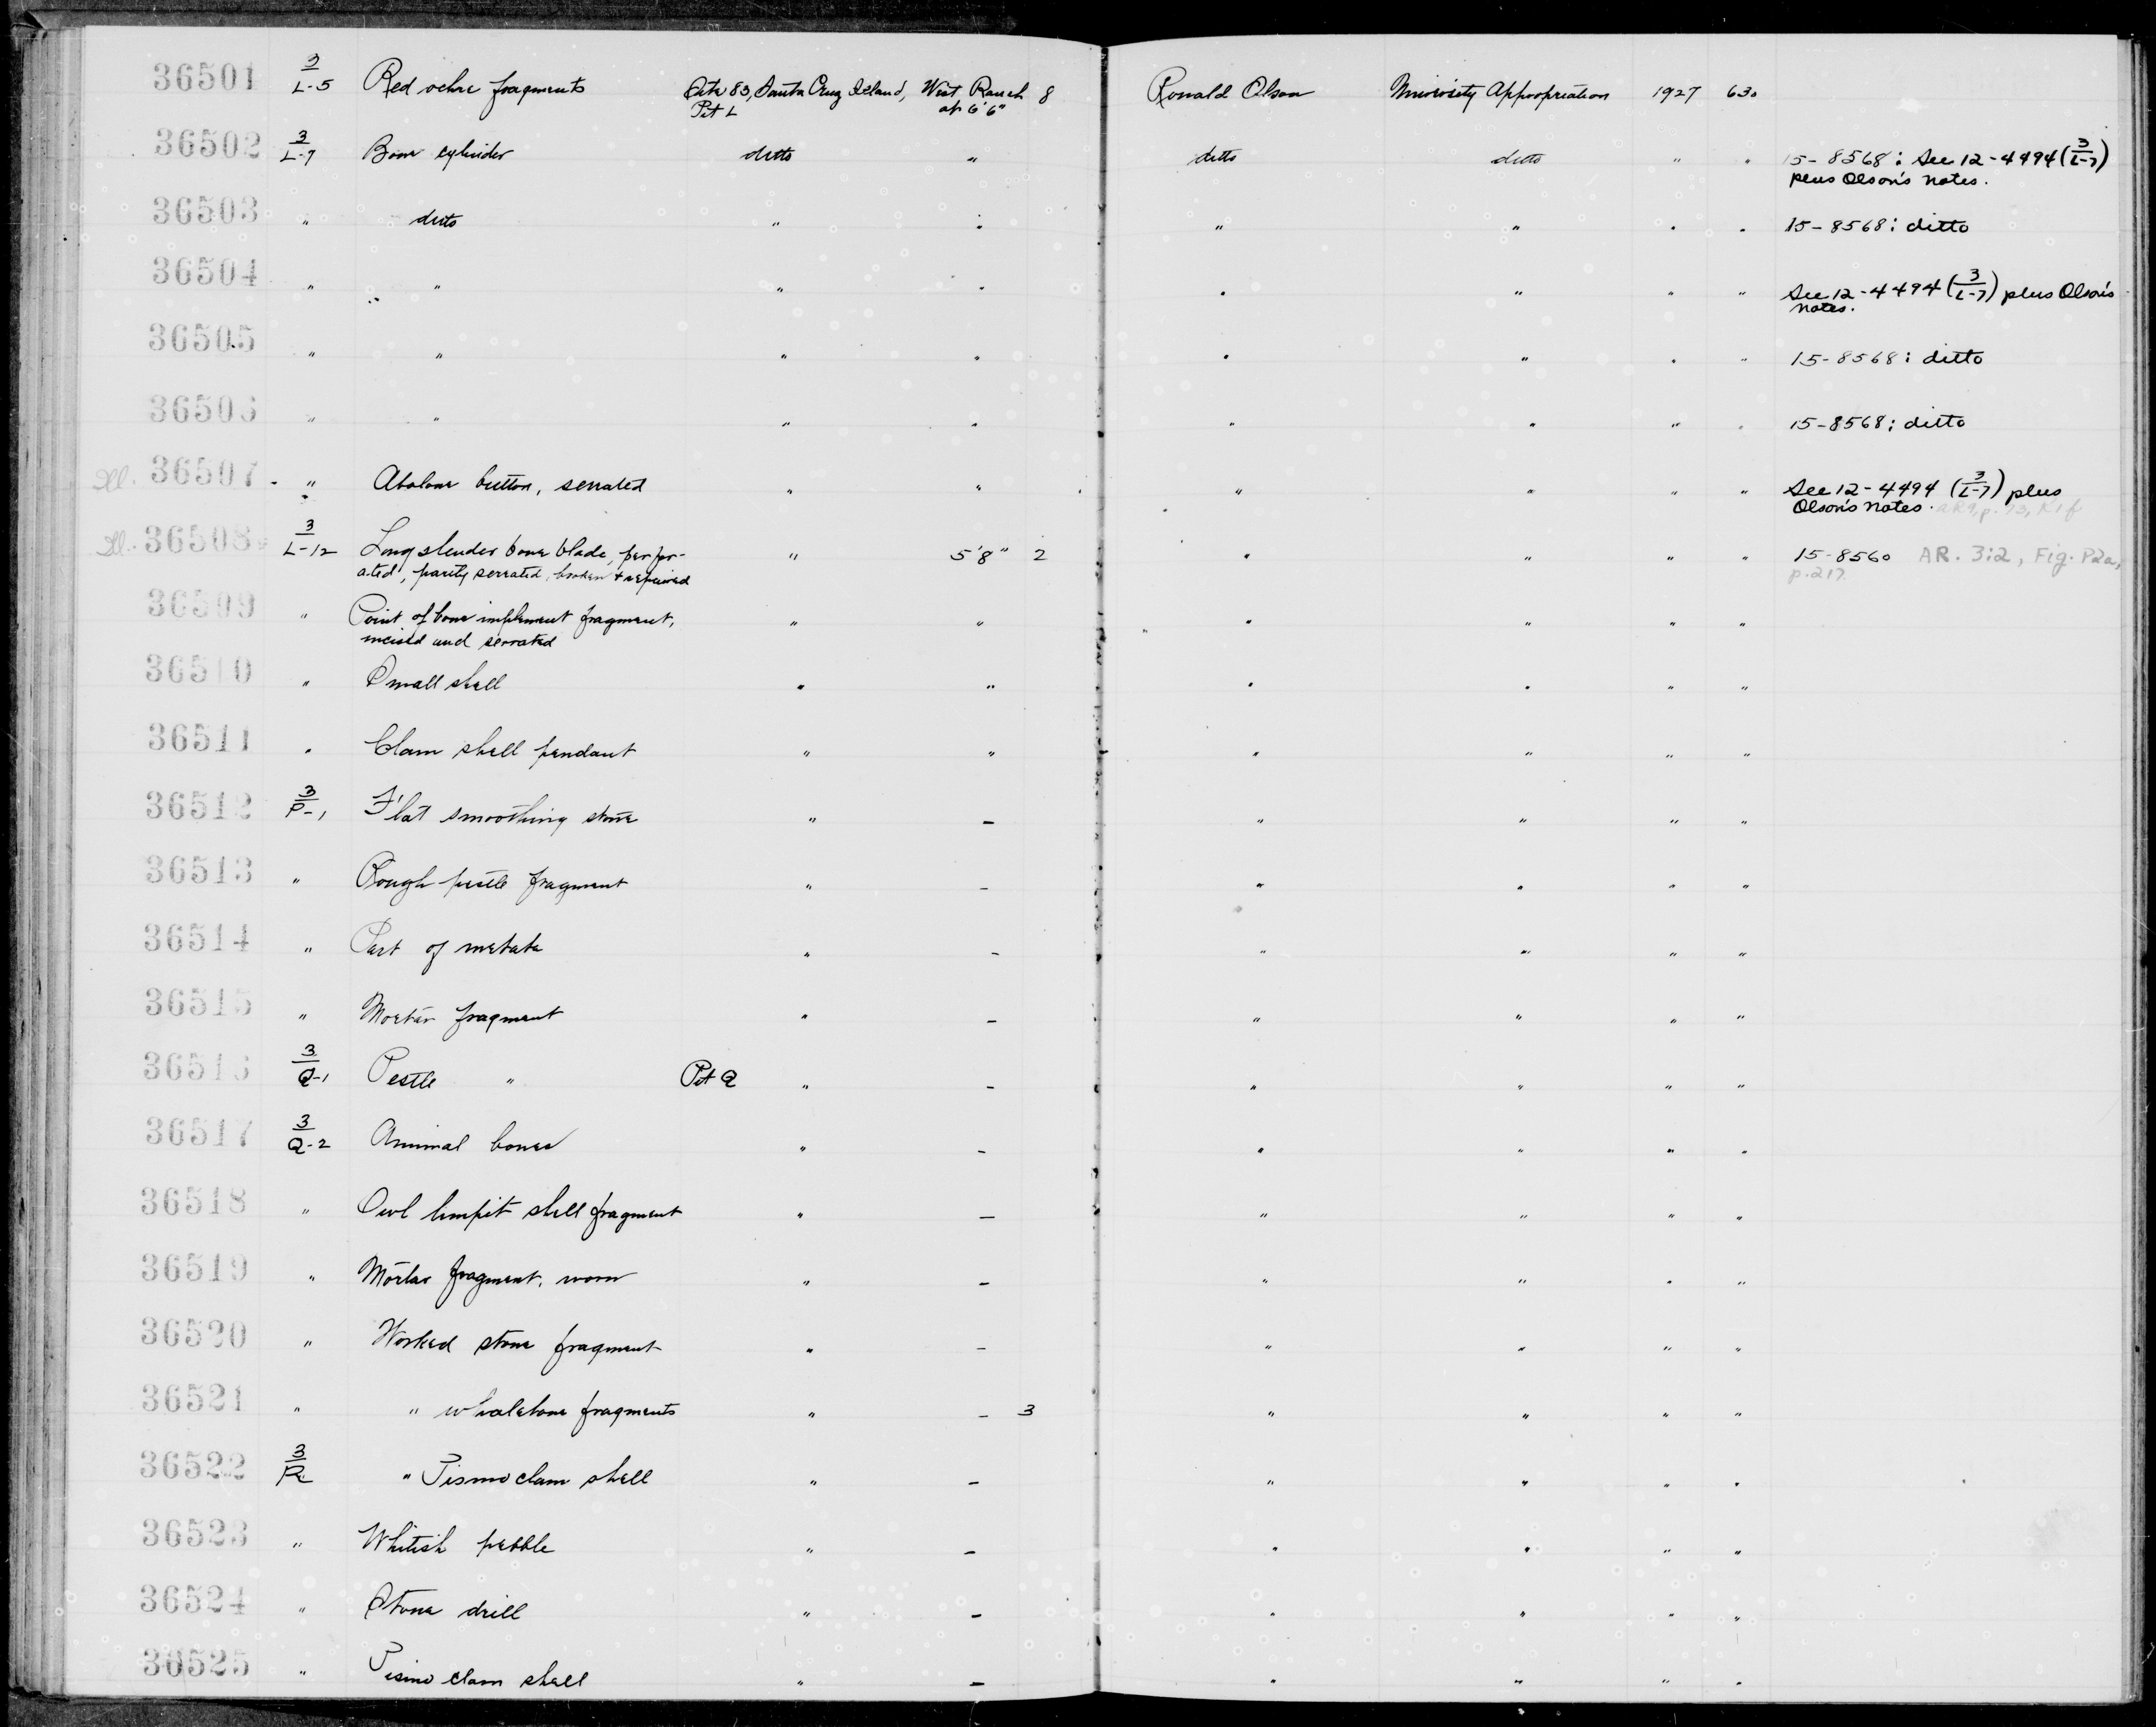 36501 3/L-5 Red ochre fragments Site 83, Santa Cruz Island, West Ranch 8 Ronald Olson University Appropriation 1927 630
Pit L at 6'6"
36502 3/L-7 Bone cylinder ditto " ditto ditto " " 15-8568: See 12-4494 (3/L-7)
plus Olson's notes.
36503 " ditto " " " " " " 15-8568: ditto
36504 " " " " " " " " See 12-4494 (3/L-7) plus Olson's
notes.
36505 " " " " " " " " 15-8568: ditto
36506 " " " " " " " " 15-8568: ditto
Ill. 36507 " Abalone button, serrated " " " " " " See 12-4494 (3/L-7) plus
Olson's notes.
Ill. 36508 3/L-12 Long slender bone blade, perfor- " 5'8" 2 " " " " 15-8560 AR. 3:2, Fig. P2a,
ated, partly serrated, broken & repaired p. 217.
36509 " Point of bone implement fragment, " " " " " "
incised and serrated
36510 " Small shell " " " " " "
36511 " Clam shell pendant " " " " " "
36512 3/P-1 Flat smoothing stone " – " " " "
36513 " Rough pestle fragment " – " " " "
36514 " Part of metate " – " " " "
36515 " Mortar fragment " – " " " "
36516 3/Q-1 Pestle " Pit Q " – " " " "
36517 3/Q-2 Animal bones " – " " " "
36518 " Owl limpit shell fragment " – " " " "
36519 " Mortar fragment, worn " – " " " "
36520 " Worked stone fragment " – " " " "
36521 " " whalebone fragments " – 3 " " " "
36522 3/R " Pismo clam shell " – " " " "
36523 " Whitish pebble " – " " " "
36524 " Stone drill " – " " " "
36525 " Pismo clam shell " – " " " "